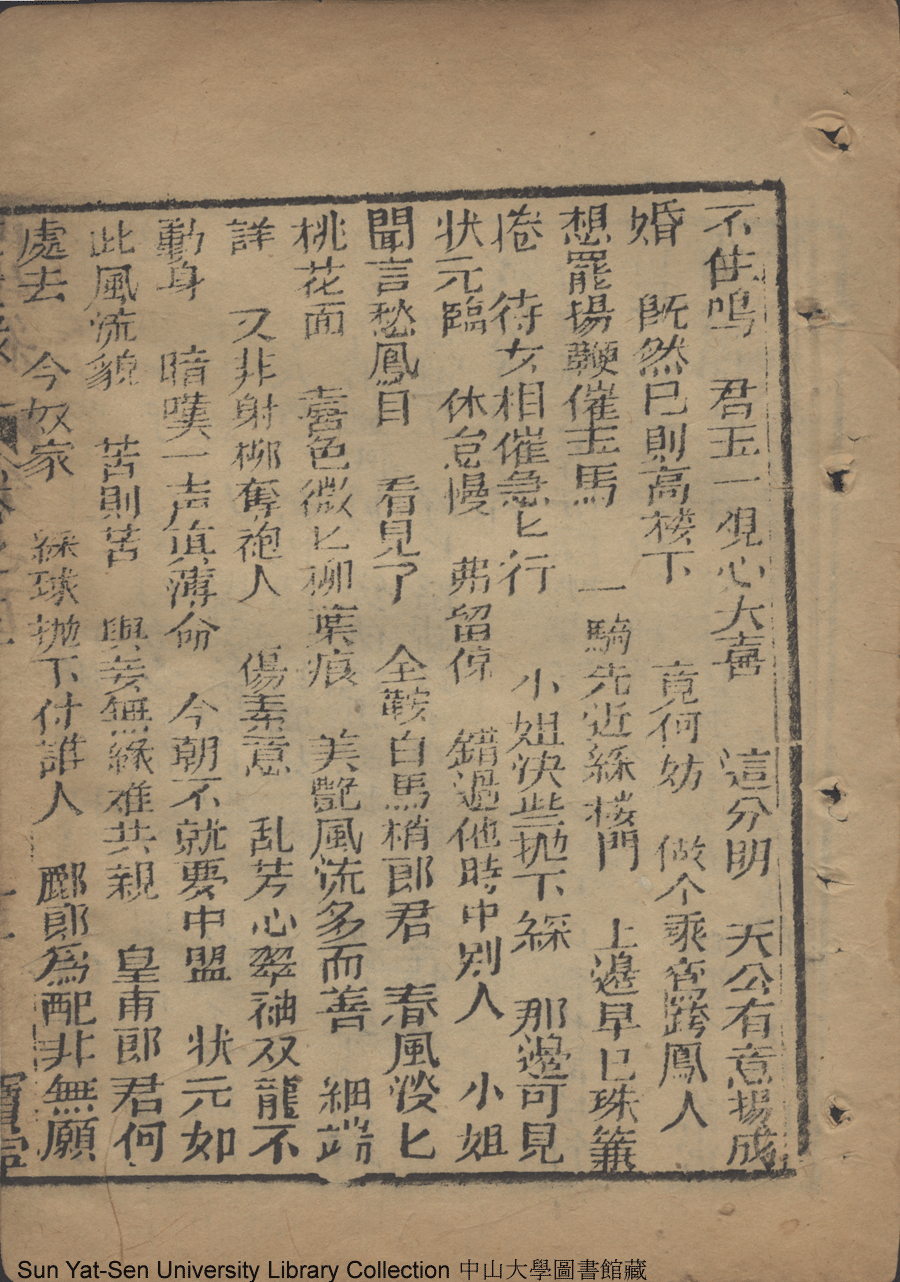 不住鳴　君玉一覌心大喜　這分明　天公有意揚成
婚　既然已則高楼下　竟何妨　做个乘鸞跨鳳人
想罷揚鞭催玉馬　一騎先近綵楼門　上邉早已珠簾
捲　待女相催急匕行　小姐快些抛下綵　那邉可見
状元臨　休怠慢　弗留停　錯過他時中别人　小姐
聞言愁鳳目　看見了　全鞍白馬梢郎君　春風淡匕
桃花面　喜色微匕柳葉痕　美艷風流多而善　細端
詳　又非射柳奪袍人　傷素意　乱芳心翠袖双龍不
動身　暗嘆一声眞薄命　今朝不就要中盟　状元如
此風流貌　苦則苦　與妾無緣难共親　皇甫郎君何
處去　今奴家　綵球抛下付誰人　酈郎為配非無願
Sun Yat-Sen University Library Collection 中山大學圖書館藏